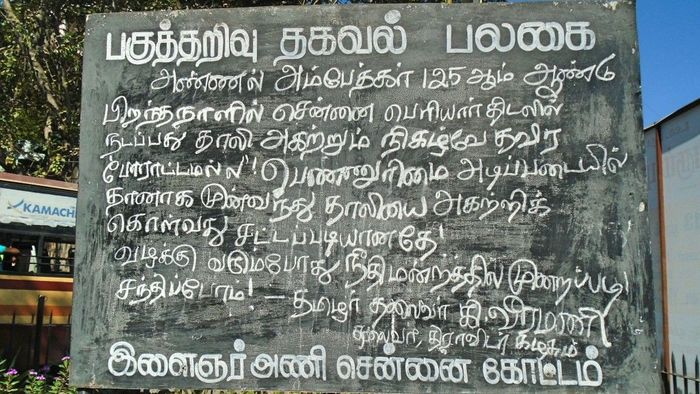 பகுத்தறிவு தகவல் பலகை
அண்ணல் அம்பேத்கர் 125 ஆம் ஆண்டு
பிறந்தநாளில் சென்னை பெரியார் திடலில்
நடப்பது தாலி அகற்றும் நிகழ்வே தவிர
போராட்டமல்ல"! பெண்ணுரிமை அடிப்படையில்
தானாக முன்வந்து தாலியை அகற்றிக்
கொள்வது சட்டப்படியானதே!
வழக்கு வரும்போது நீதிமன்றத்தில் முறைப்படி
சந்திப்போம்! - தமிழர் தலைவர் கி.வீரமணி
தலைவர், திராவிடர் கழகம்
இளைஞர் அணி சென்னை கோட்டம்
KAMACH